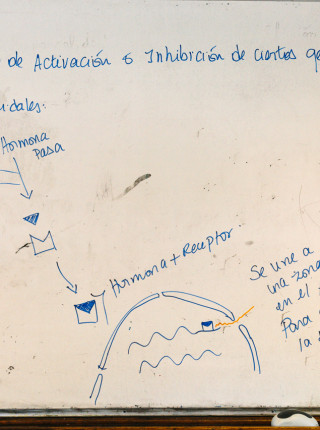 de Activación ó Inhibición de ciertos
idales:
Hormona
Pasa
Hormona + Receptor
Se une a
una zona
en el
Para
la